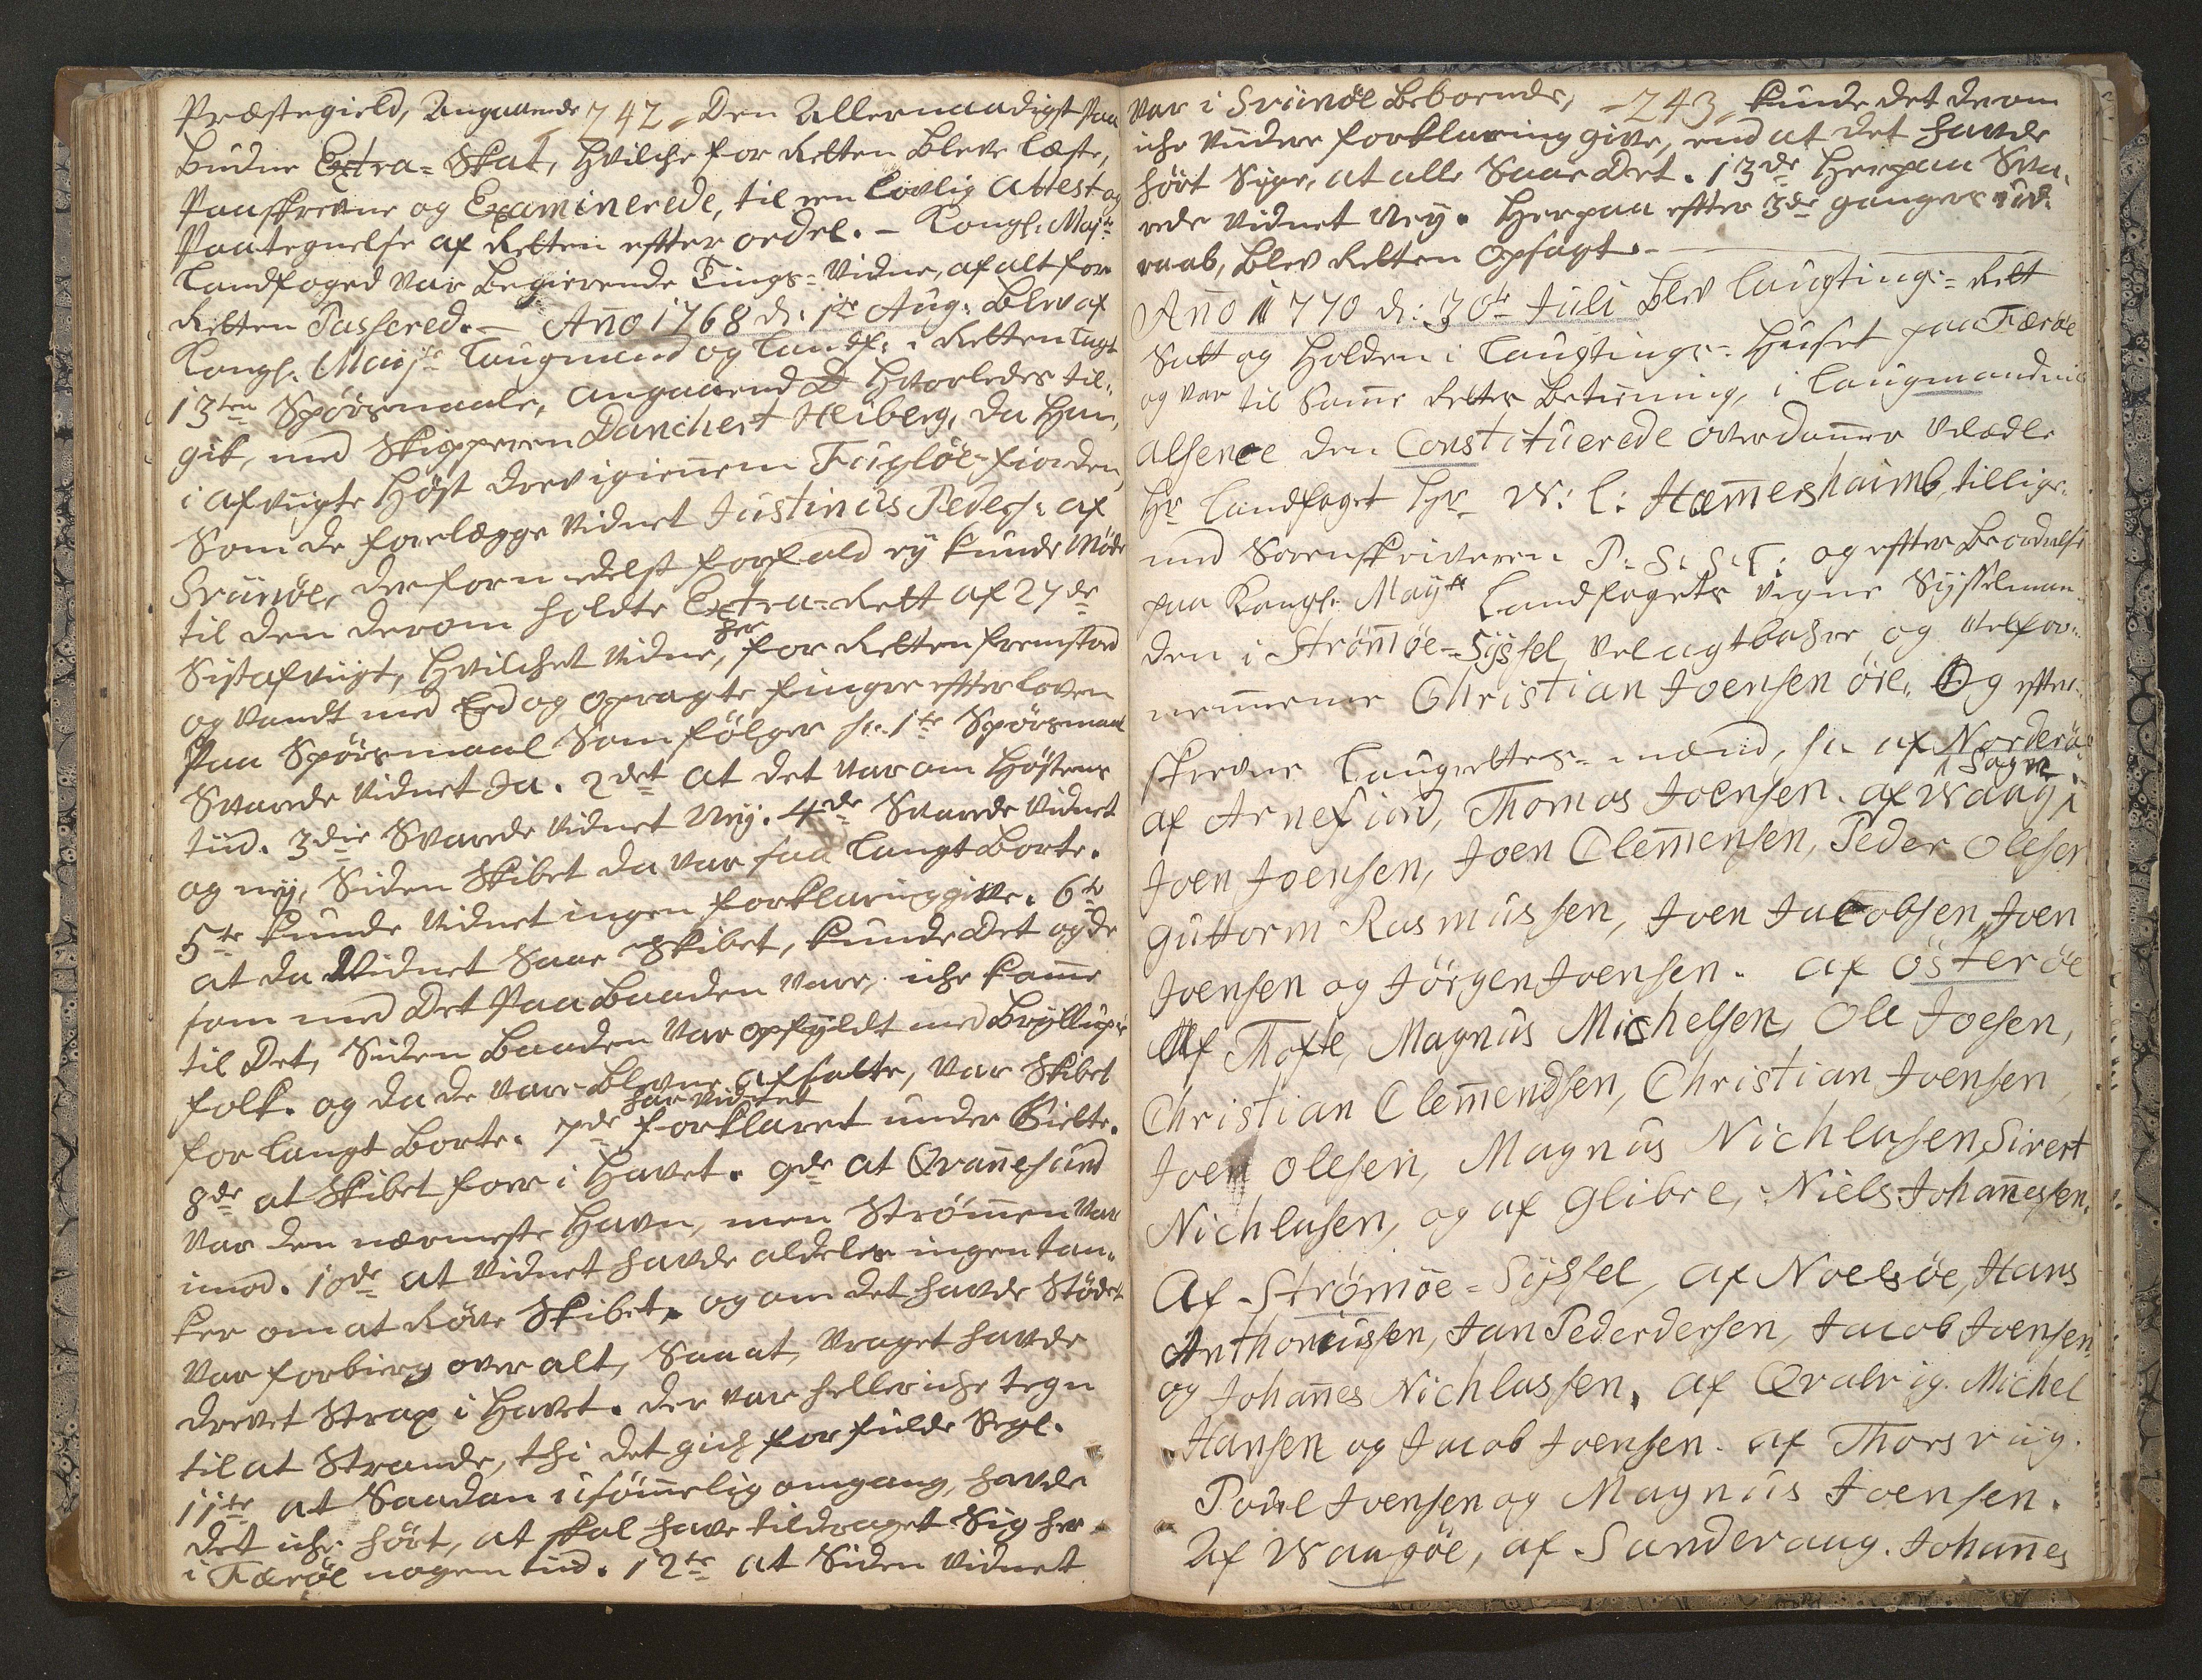 Præstegield, Angaaende 742 Den Allernaadigst Paa
budne Extra-Skat, hvilche for Retten bleve læste,
Paaskrevne og Examinerede, til een lovlig Attest og
Paategnelse af Retten efter ordet. - Kongl: Majts
Landfoged var begierende Tings-Vidne, af alt for
Retten Passered. - Ano 1768 d. 1te Aug: blev af
Kongl. Majts Laugmand og Landf: i Retten lagt
13ten Spörsmaale, angaaende hvorledes til,
gik, med Skipperen Danchert Heiberg, da han,
i afvigte Höst drev igienem Fuglöe-fiorden,
Som de forelægge Vidnet Justinus Peders: af
Svinöe, der formedelst forfald ey kunde Möde
til den derom holdte Extra-Rett af 27de
Sistafvigt, hvilchet Vidne, her for Retten fremstod
og vandt med Eed og opragte finger efter loven
Paa Spörsmaal Som fölger sc. 1te Spörsmaal
Svarede Vidnet Ja. 2det at det var om Höstens
tiid. 3die Svarede Vidnet Ney. 4de Svarede Vidnet
og ney, Siden Skibet da var saa langt borte.
5te kunde Vidnet ingen forklaring give. 6te
at da Vidnet Saae Skibet, kunde Det og de
som med Det Paa baaden vare, iche kome
til Det, Siden baaden var opfyldt med bryllups
folk. og da de vare blevne afsatte, var Skibet
for langt borte. 7de har vidnet forklaret under Gielte.
8de at Skibet foer i Havet. 9de at Qvanesund
var den nærmeste Havn, men Strömen var
imod. 10de at Vidnet havde aldeles ingen tan-
ker om at Röve Skibet, og om det havde Stödet
var forbierg over alt, Saa at, Vraget havde
drevet Strax i Havet. der var heller iche tegn
til at Strande, thi det gich for fulde Segl.
11te at Saadan usömelig omgang, havde
det iche hört, at skal have tildraget Sig her
i Færöe nogen tiid. 12te at Siden Vidnet
var i Svinöe boende, -743 kunde det derom
iche videre forklaring give, end at det havde
hört Sige, at alle Saae Det. 13de herpaa Sva-
rede Vidnet Ney. Herpaa efter 3de ganges ud-
raab, blev Retten Opsagt. -
Ano 1770 d: 30te Juli blev laugtings-Rett
Satt og holden i Laugtings-Huset paa Færöe
og var til Same Rettes betiening, i Laugmandens
absence den Constituerede overdomer Velædle
Hr Landfoget Hr W: L: Hamershaimb, tillige-
med Sorenskriveren P: S: S: T: og efter beordrelse
paa Kongl: Mayts Landfogets Vegne Sysselman-
den i Strömöe-Syssel, Velagtbahre og Velfor-
nemme Christian Joensen öre. Og efter-
skrevne Laugrettes-mænd, sc. af Norderöe
af Arnefiord, Thomas Joensen. af Waag i Sogn,
Joen Joensen, Joen Clemensen, Peder Olesen
Guttorm Rasmussen, Joen Jacobsen, Joen
Joensen og Jörgen Joensen. af österöe
Af Thofte, Magnus Michelsen, Ole Joesen,
Christian Clemendsen, Christian Joensen,
Joen olesen, Magnus Nichlasen, Sivert
Nichlasen, og af Glibre, Niels Johanessen.
Af Strömöe-Syssel, af Noelsöe, Hans
Anthoniussen, Jan Pederdersen, Jacob Joensen
og Johanes Nichlassen. af Qvalvig. Michel
Hansen og Jacob Joensen. af Thorsviig.
Povel Joensen og Magnus Joensen.
Af Waagöe, af Sandevaag. Johanes